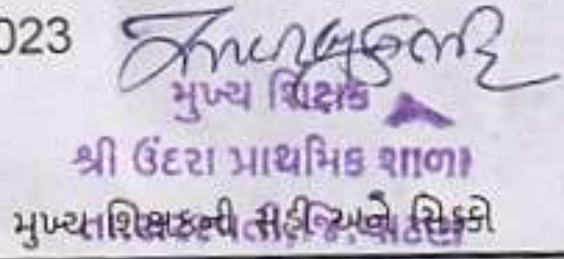 023
મુખ્ય શિક્ષક
શ્રી ઉંદરા પ્રાથમિક શાળા
મુખ્ય શિક્ષકની સહી અને સિક્કો